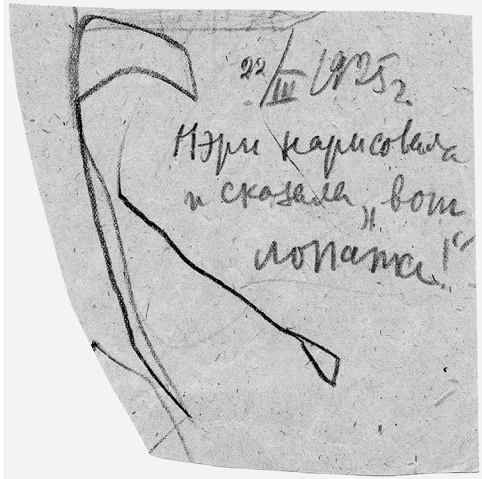 22/III 1925г.
Нэри нарисовала
и сказала „вот
лопатка!“